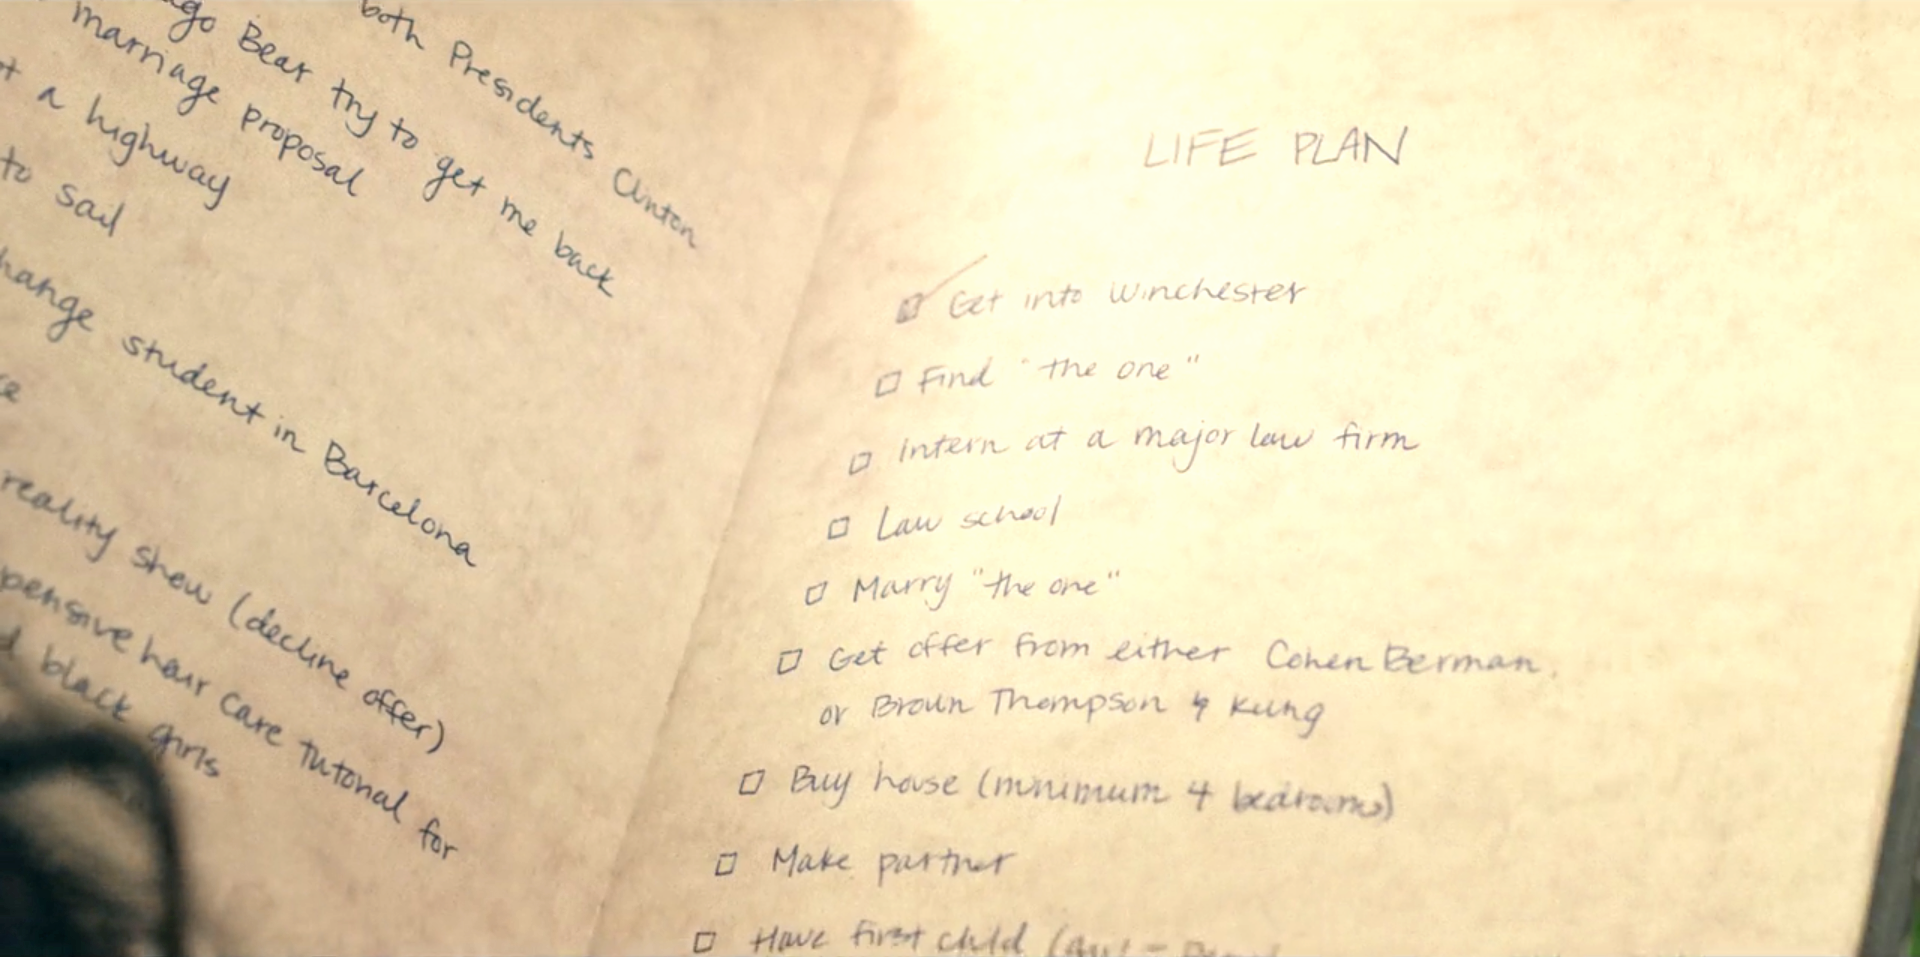 both Presidents Clinton
Bear try to get me back
marriage proposal
a highway
to sail
student in Barcelona
reality show (decline offer)
hair care tutorial for
black girls
LIFE PLAN
Get into Winchester
Find "the one"
Intern at a major law firm
Law school
Marry "the one"
Get offer from either Cohen Berman
or Brown Thompson & Kung
Buy house (minimum 4 bedrooms)
Make partner
Have first child